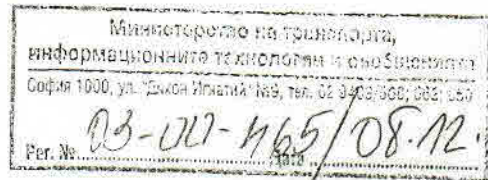 Министерство на транспорта,
информационните технологии и съобщенията
София 1000, ул. "Дякон Игнатий" №9, тел. 02
Рег. № 03-00-465/08.12.